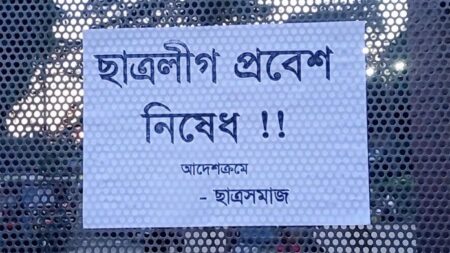 ছাত্রলীগ প্রবেশ
নিষেধ !!
আদেশক্রমে
- ছাত্রসমাজ